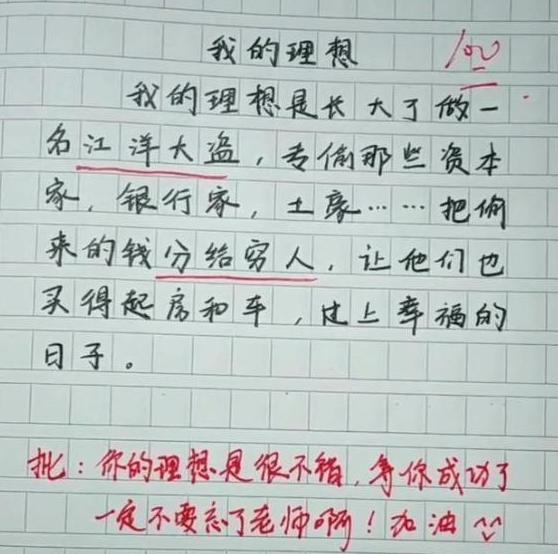 我的理想 100
我的理想是长大了做一
名江洋大盗，专偷那些资本
家，银行家，土豪……把偷
来的钱分给穷人，让他们也
买得起房和车，过上幸福的
日子。
批：你的理想是很不错，等你成功了
一定不要忘了老师啊！加油